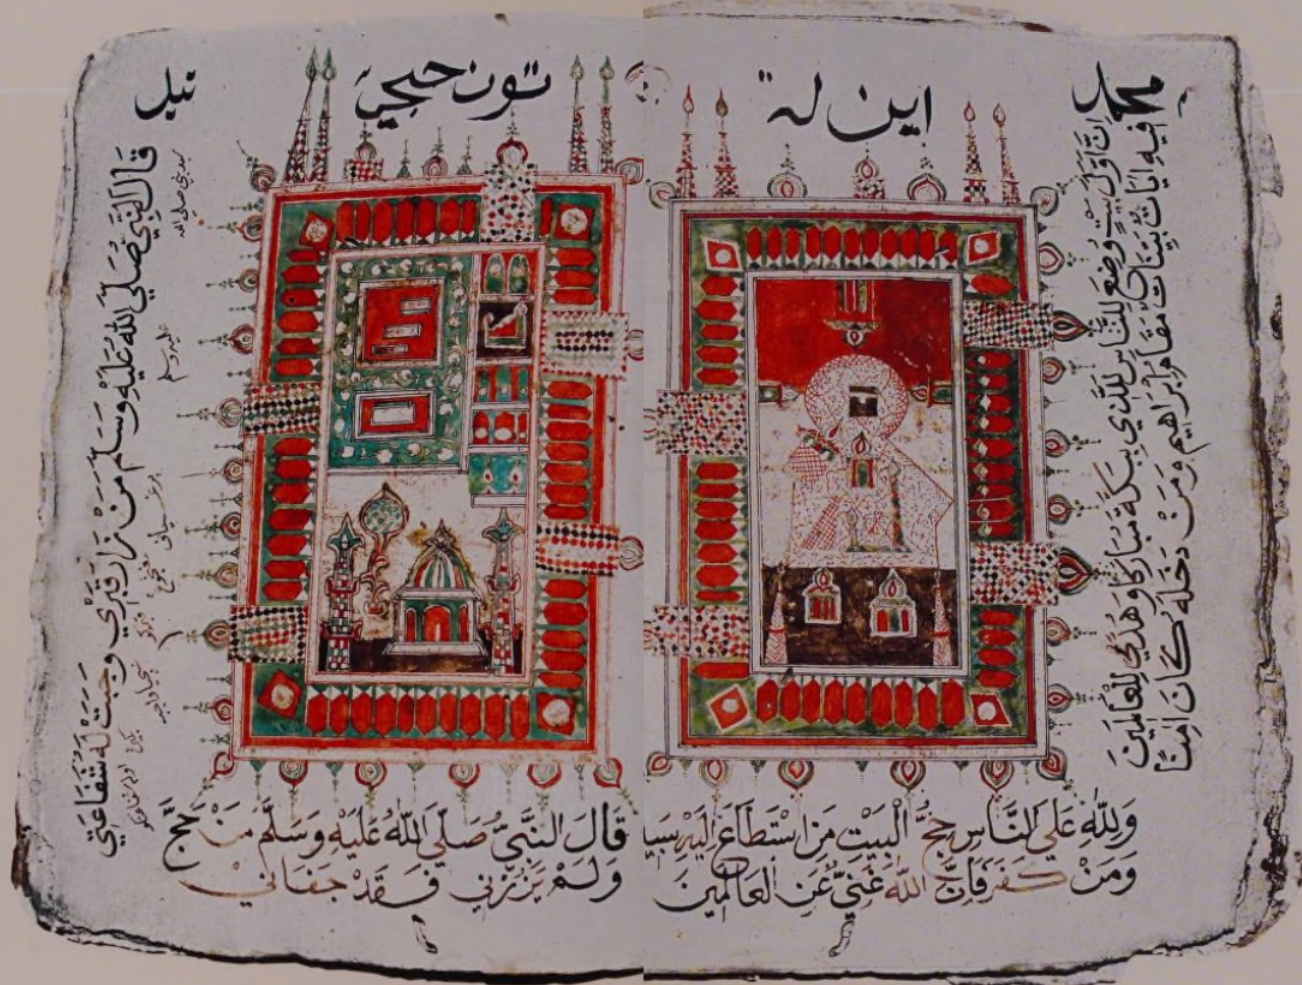 محمد
اين لة
تون حجي
اِنَّ اَوَّلَ بَيْتٍ وُضِعَ لِلنَّاسِ لَلَّذِي بِبَكَّةَ مُبَارَكًا وَهُدًي لِلْعَالَمِينَ
فِيهِ اٰيَاتٌ بَيِّنَاتٌ مَقَامُ اِبْرَاهِيمَ وَمَنْ دَخَلَهُ كَانَ اٰمِنًا
وَلِلّٰهِ عَلَي النَّاسِ حِجُّ الْبَيْتِ مَنِ اسْتَطَاعَ اِلَيْهِ سَبِيا
وَمَنْ كَفَرَ فَاِنَّ اللّٰهَ غَنِيٌّ عَنِ الْعَالَمِينَ
قَالَ النَّبِيُّ صَلَّي اللّٰهُ عَلَيْهِ وَسَلَّمَ مَنْ حَجَّ
وَلَمْ يَزُرْنِي فَقَدْ جَفَانِي
قَالَ النَّبِيُّ صَلَّي اللّٰهُ عَلَيْهِ وَسَلَّمَ مَنْ زَارَ قَبْرِي وَجَبَتْ لَهُ شَفَاعَتِي